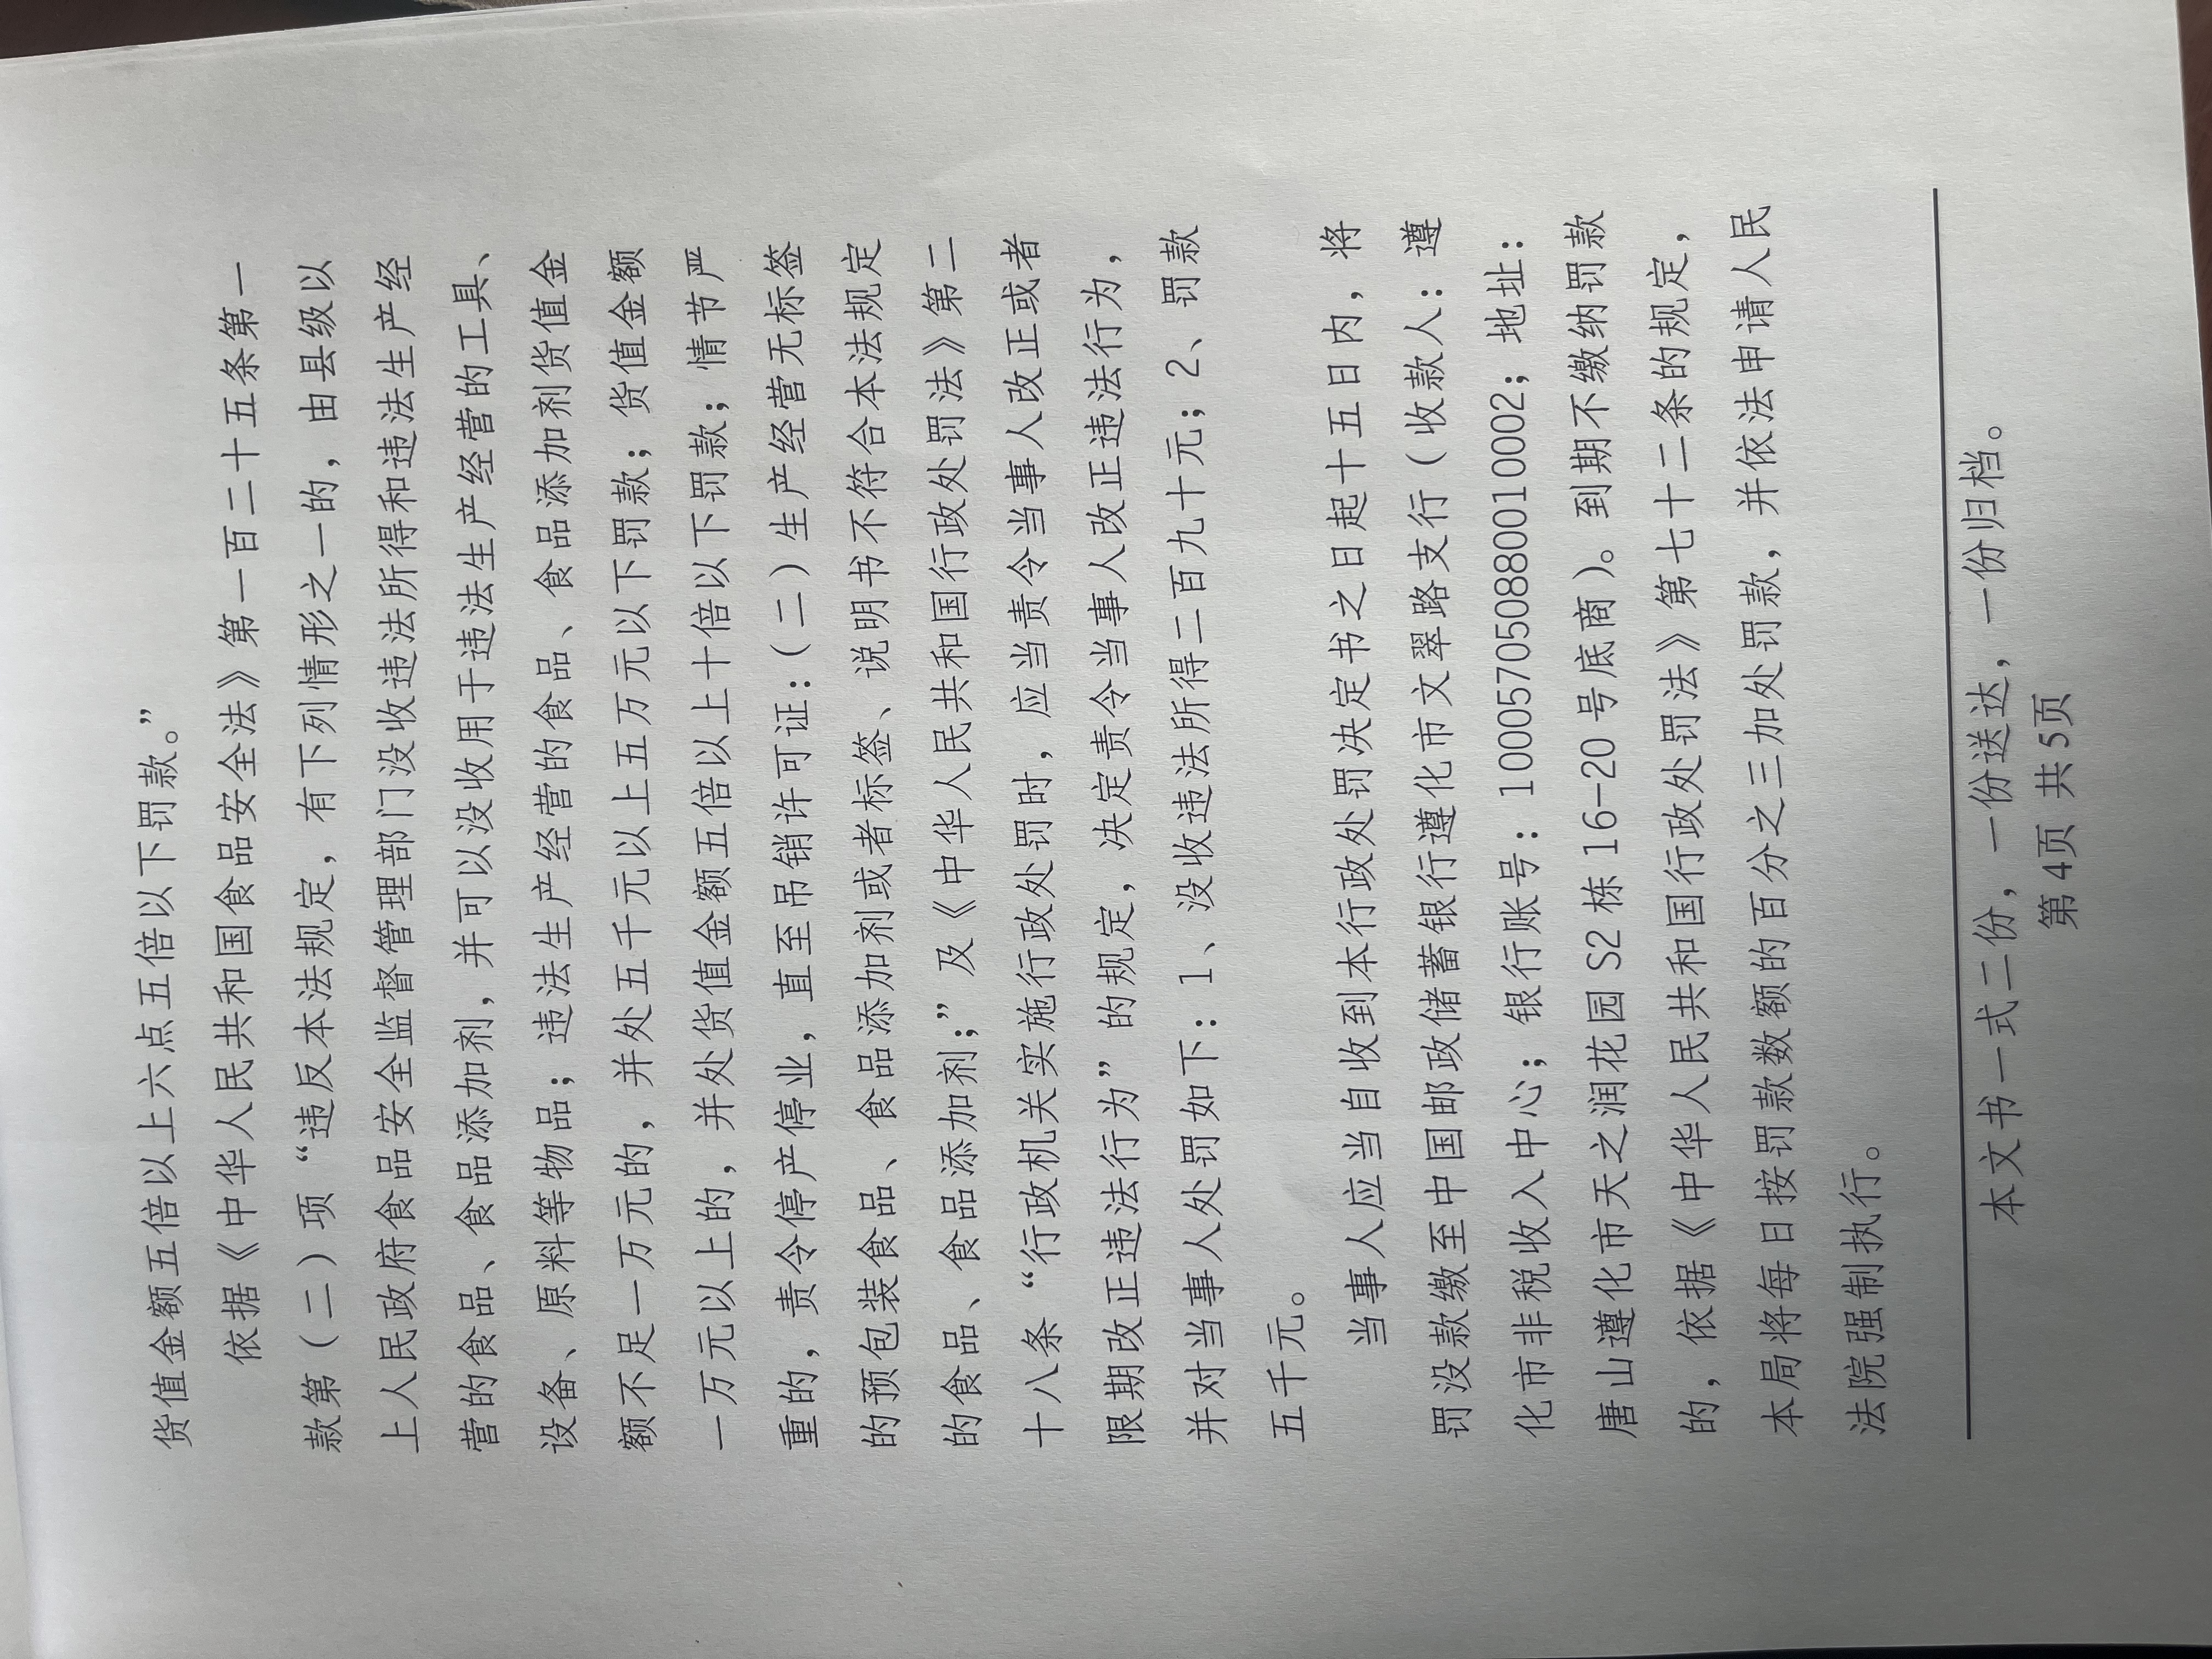 货值金额五倍以上六点五倍以下罚款。”
依据《中华人民共和国食品安全法》第一百二十五条第一
款第（二）项“违反本法规定，有下列情形之一的，由县级以
上人民政府食品安全监督管理部门没收违法所得和违法生产经
营的食品、食品添加剂，并可以没收用于违法生产经营的工具、
设备、原料等物品；违法生产经营的食品、食品添加剂货值金
额不足一万元的，并处五千元以上五万元以下罚款；货值金额
一万元以上的，并处货值金额五倍以上十倍以下罚款；情节严
重的，责令停产停业，直至吊销许可证：（二）生产经营无标签
的预包装食品、食品添加剂或者标签、说明书不符合本法规定
的食品、食品添加剂；”及《中华人民共和国行政处罚法》第二
十八条“行政机关实施行政处罚时，应当责令当事人改正或者
限期改正违法行为”的规定，决定责令当事人改正违法行为，
并对当事人处罚如下：1、没收违法所得二百九十元；2、罚款
五千元。
当事人应当自收到本行政处罚决定书之日起十五日内，将
罚没款缴至中国邮政储蓄银行遵化市文翠路支行（收款人：遵
化市非税收入中心；银行账号：100057050880010002；地址：
唐山遵化市天之润花园 S2 栋 16-20 号底商）。到期不缴纳罚款
的，依据《中华人民共和国行政处罚法》第七十二条的规定，
本局将每日按罚款数额的百分之三加处罚款，并依法申请人民
法院强制执行。
本文书一式二份，一份送达，一份归档。
第 4页 共 5页